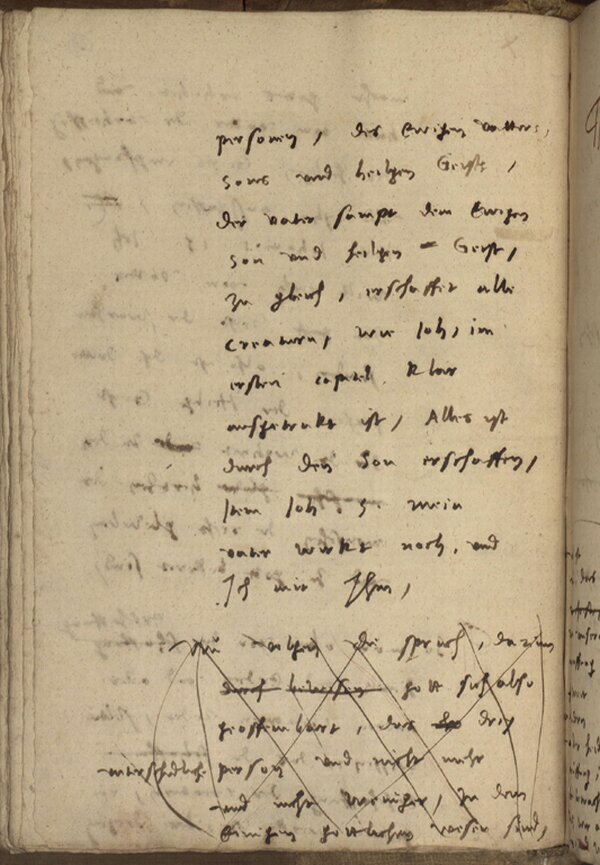 personen, des Ewigen vatters,
Sons und heilgen Geists,
der vater sampt dem Ewigen
Son und heilgen Geist,
zu gleich, erschaffet alle
Creaturn, wie Joh, im
ersten capitel klar
ausgetrukt ist, Alles ist
durch den Son erschaffen,
Item Joh. 5. mein
vater wirkt noch, und
Ich mit Ihm,
die spruch, darinn
durch gott sich also
geoffenbart, das drey
unterschidliche person und nicht mehr
und nicht weniger, In dem
Einigen gottlichen wesen sind,